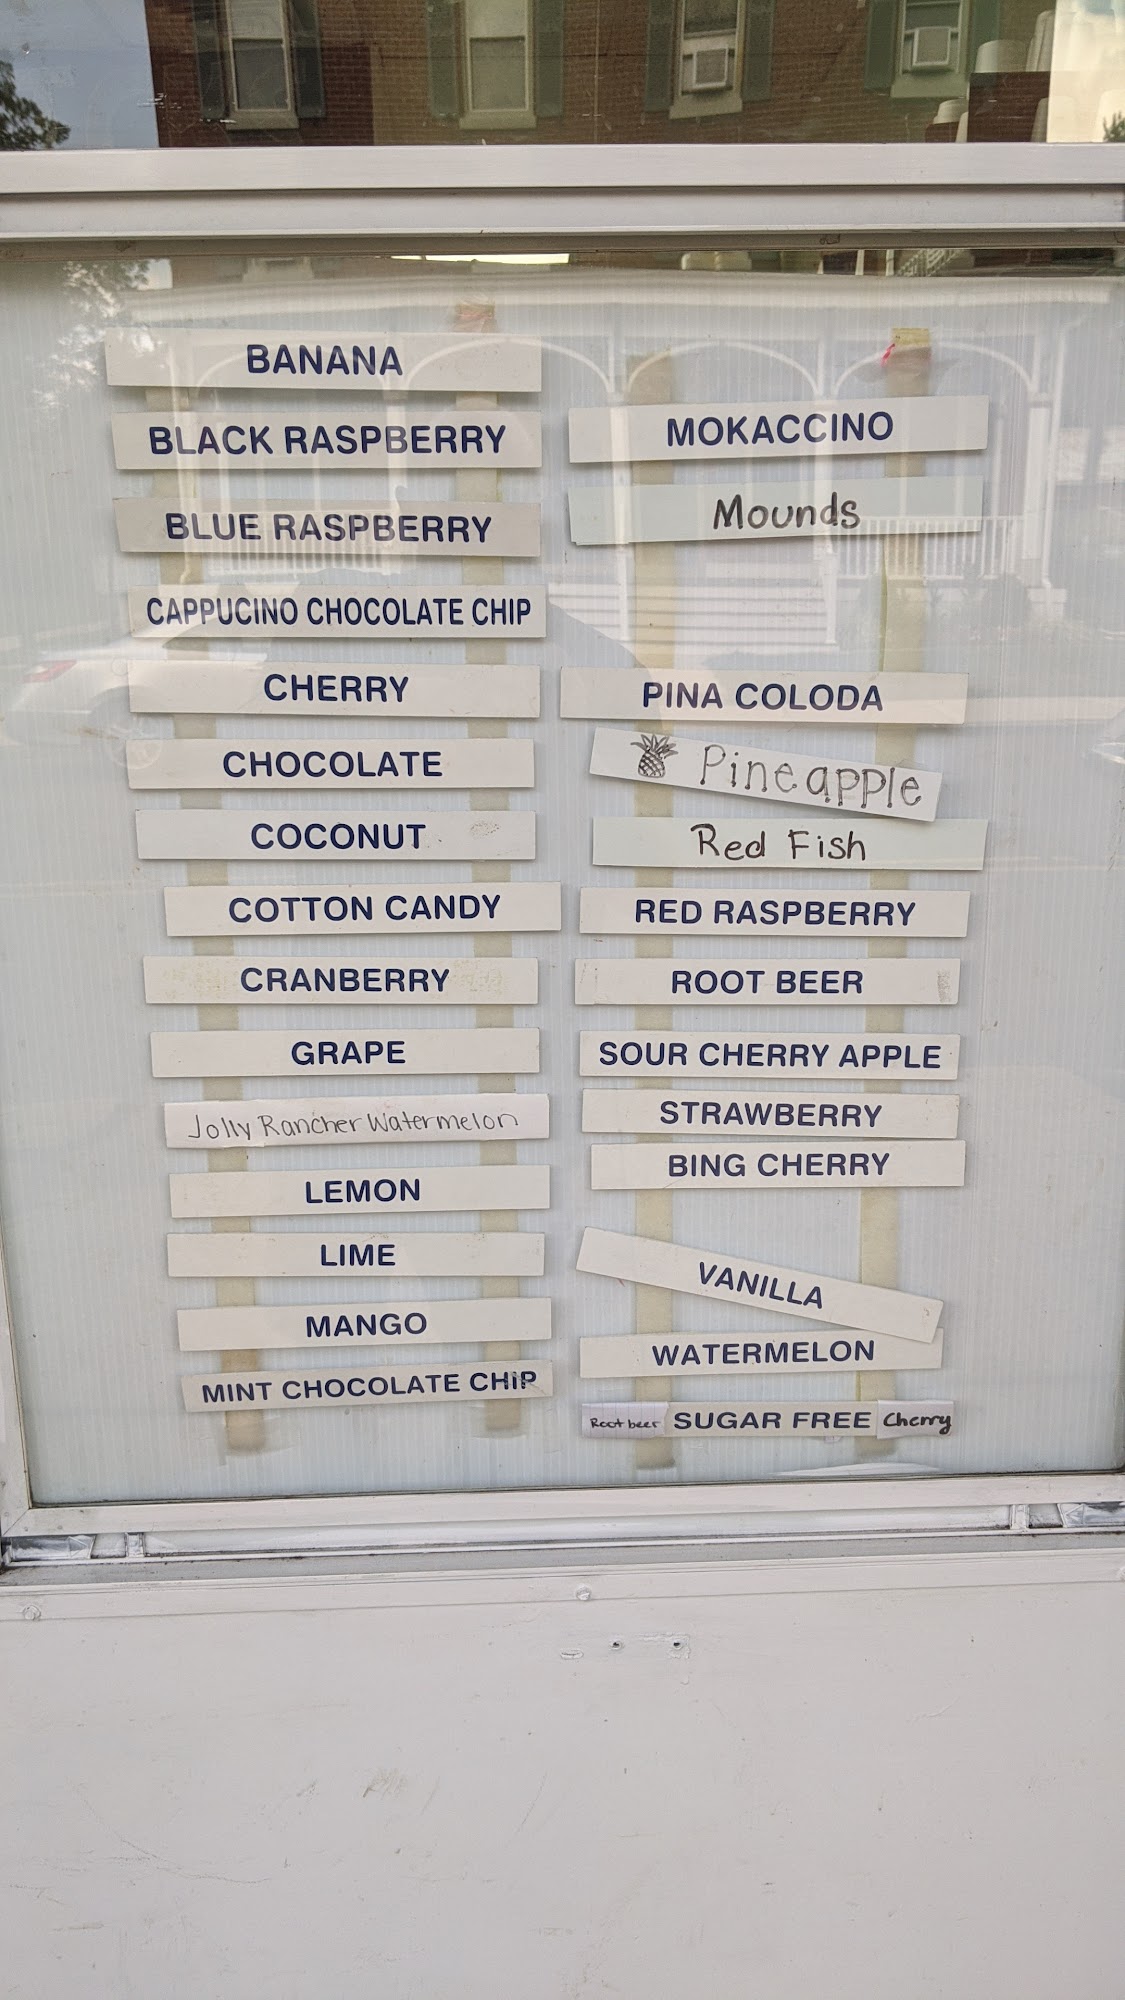 BANANA
BLACK RASPBERRY
BLUE RASPBERRY
CAPPUCINO CHOCOLATE CHIP
CHERRY
CHOCOLATE
COCONUT
COTTON CANDY
CRANBERRY
GRAPE
Jolly Rancher Watermelon
LEMON
LIME
MANGO
MINT CHOCOLATE CHIP
MOKACCINO
Mounds
PINA COLODA
Pineapple
Red Fish
RED RASPBERRY
ROOT BEER
SOUR CHERRY APPLE
STRAWBERRY
BING CHERRY
VANILLA
WATERMELON
Root beer SUGAR FREE Cherry